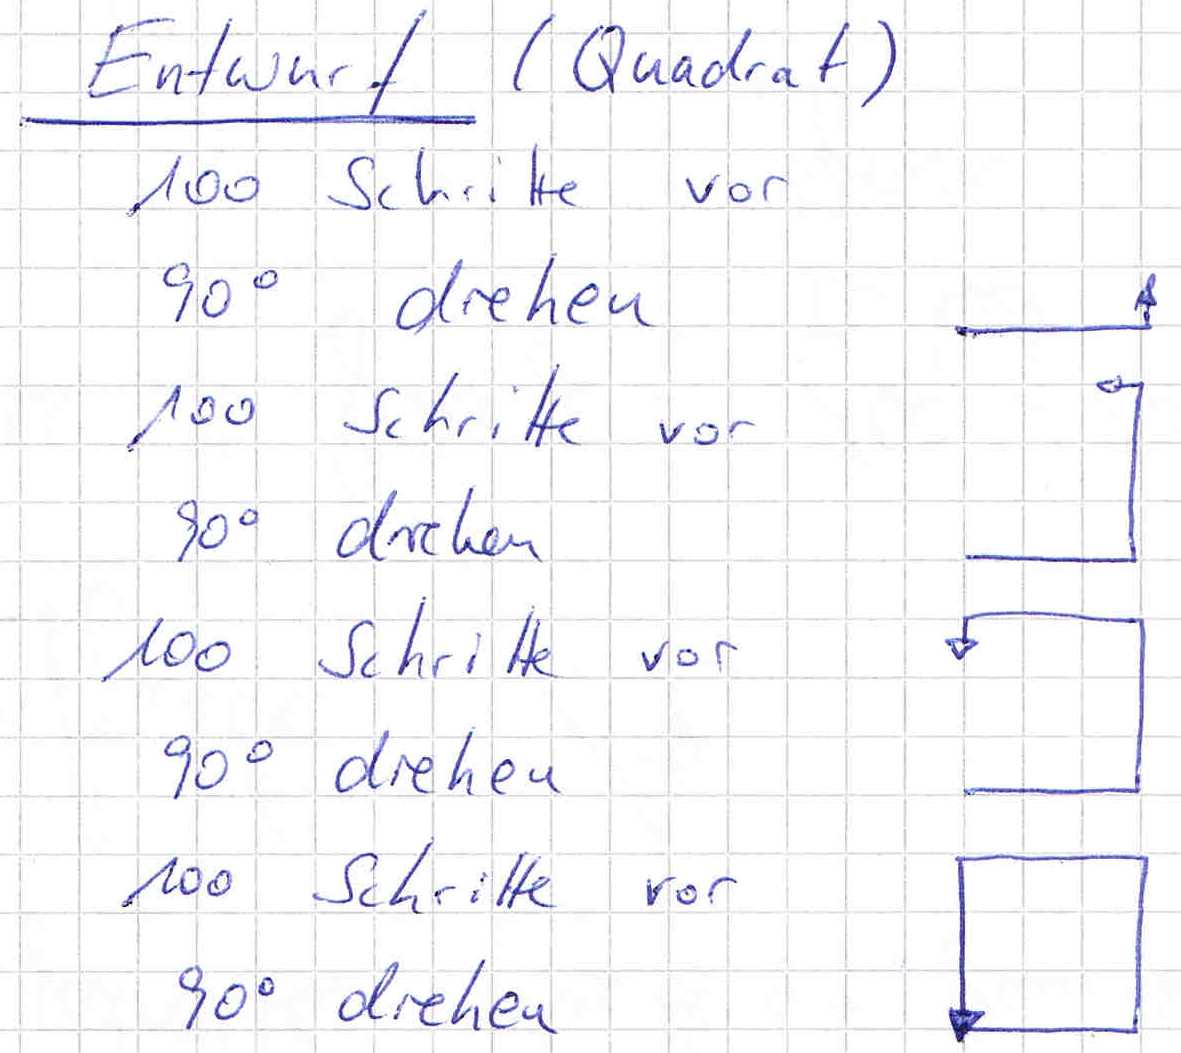 Entwurf (Quadrat)
100 Schritte vor
90° drehen
100 Schritte vor
90° drehen
100 Schritte vor
90° drehen
100 Schritte vor
90° drehen